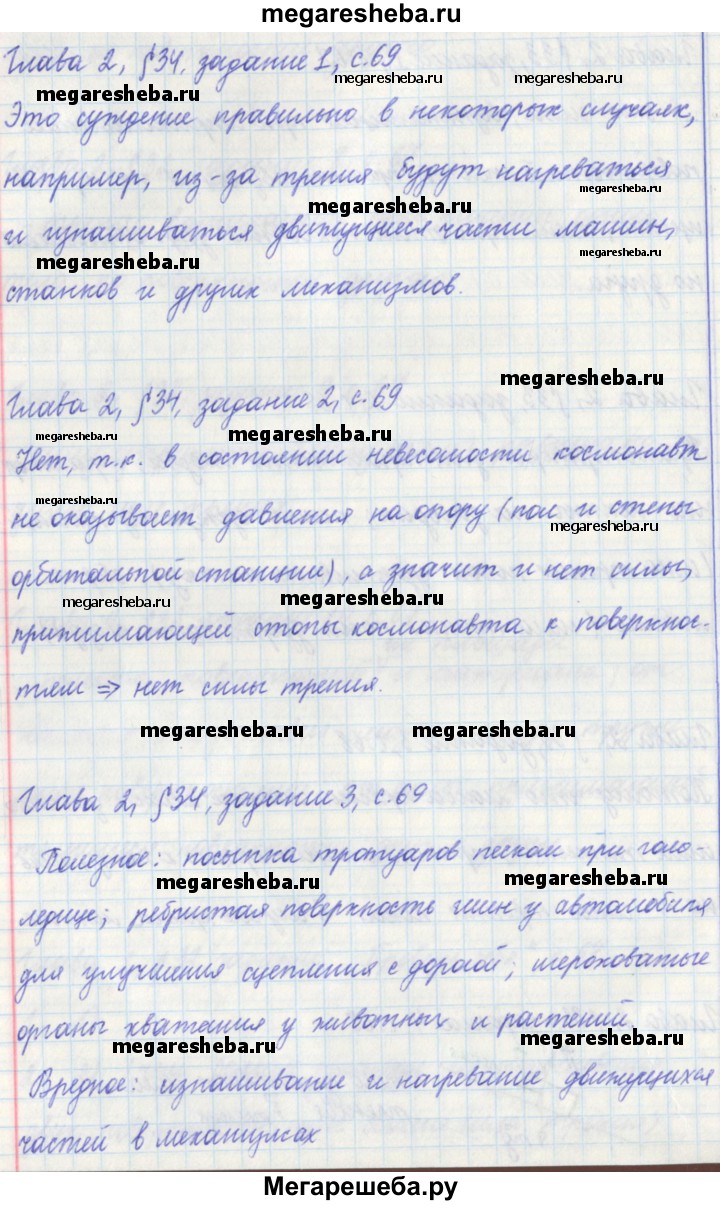 megaresheba.ru
Глава 2, §34, задание 1, с.69
megaresheba.ru
megaresheba.ru
Это суждение правильно в некоторых случаях,
например, из-за трения будут нагреваться
megaresheba.ru
megaresheba.ru
и изнашиваться движущиеся части машин,
megaresheba.ru
megaresheba.ru
станков и других механизмов.
megaresheba.ru
Глава 2, §34, задание 2, с.69
megaresheba.ru
megaresheba.ru
Нет, т.к. в состоянии невесомости космонавт
megaresheba.ru
не оказывает давления на опору (пол и стены
megaresheba.ru
орбитальной станции), а значит и нет силы,
megaresheba.ru
megaresheba.ru
прижимающей стопы космонавта к поверхнос-
тям => нет силы трения.
megaresheba.ru
megaresheba.ru
Глава 2, §34, задание 3, с.69
Полезное: посыпка тротуаров песком при голо-
megaresheba.ru
megaresheba.ru
ледице; ребристая поверхность шин у автомобиля
для улучшения сцепления с дорогой; шероховатые
органы хватания у животных и растений.
megaresheba.ru
megaresheba.ru
Вредное: изнашивание и нагревание движущихся
частей в механизмах
Мегарешеба.ру